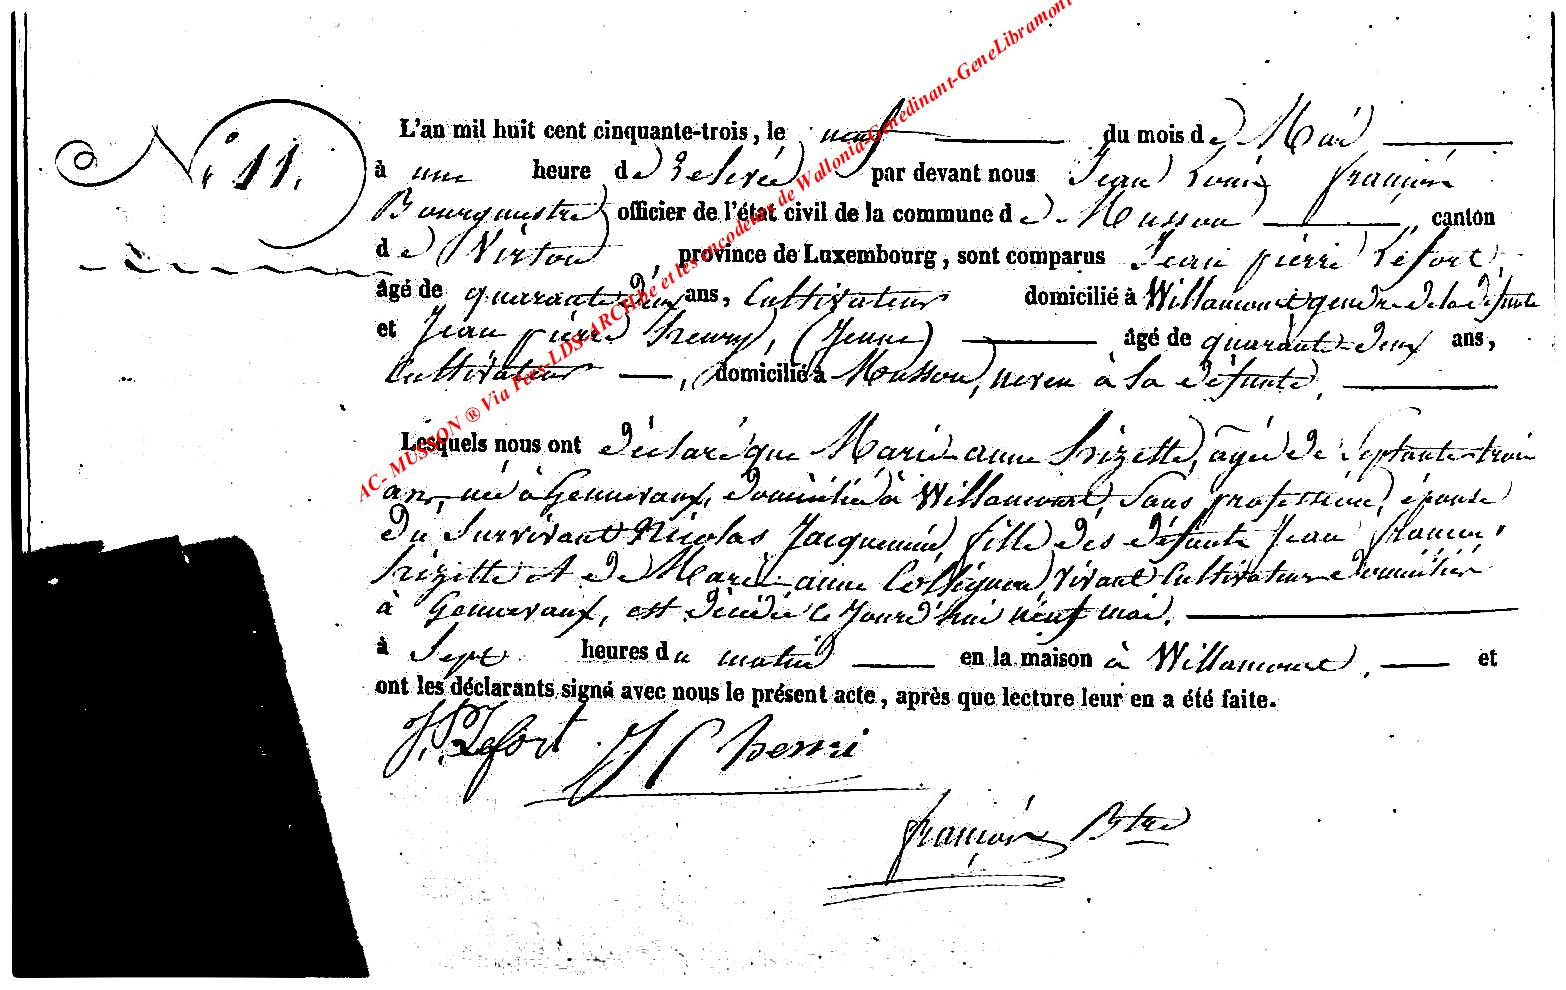 N° 11.
L'an mil huit cent cinquante-trois, le neuf du mois de Mai
à une heure de Relevée par devant nous Jean Louis françois
Bourgmestre officier de l'état civil de la commune de Musson, canton
de Virton, province de Luxembourg, sont comparus Jean pierre Lefort,
âgé de quarante deux ans, Cultivateur domicilié à Willancourt gendre de la défunte
et Jean pierre henry, (Jeune) âgé de quarante deux ans,
Cultivateur, domicilié à Musson, neveu à la défunte.
Lesquels nous ont déclaré que Marie anne hizette, agée de Septante trois
ans, née à Gennevaux, domiciliée à Willancourt, Sans profession, épouse
du Survivant Nicolas Jacquemin, fille des défunts Jean françois
hizette et de Marie anne Collignon, vivant Cultivateurs domiciliés
à Gennevaux, est décédée ce Jourd'hui neuf mai.
à Sept heures du matin en la maison à Willancourt, et
ont les déclarants signé avec nous le présent acte, après que lecture leur en a été faite.
J. P. Lefort J P henri
françois Btre
AC- MUSSON ® Via Peev-LDS-ARCH.be et les encodeurs de Wallonia-Genedinant-GeneLibramont